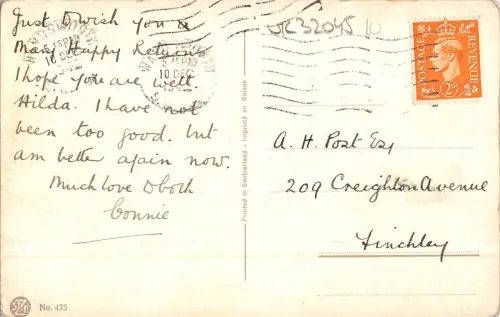 Just to wish you a
Many Happy Returns
I hope you are well.
Hilda. I have not
been too good. but
am better again now.
Much love to both
Connie
No. 475
Printed in Switzerland - Imprimé en Suisse
UC32045 10
5 15 PM
10 DEC
POSTAGE
REVENUE
2D
A. H. Post Esq
209 Creighton Avenue
Finchley